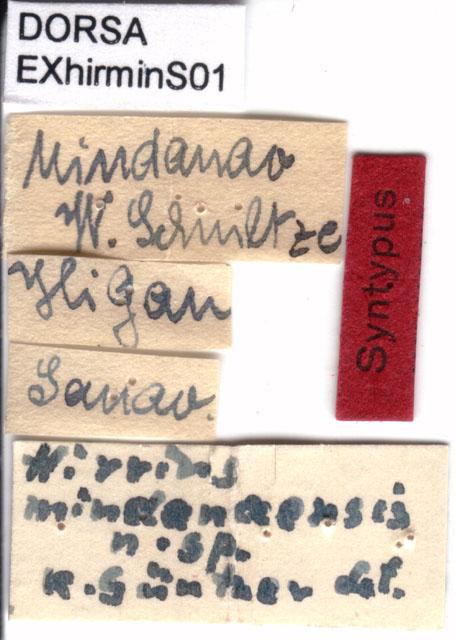 DORSA
EXhirminS01
Mindanao
W. Schultze
Iligan
Lanao.
Syntypus
Hirrius
mindanaensis
n. sp.
K. Günther det.